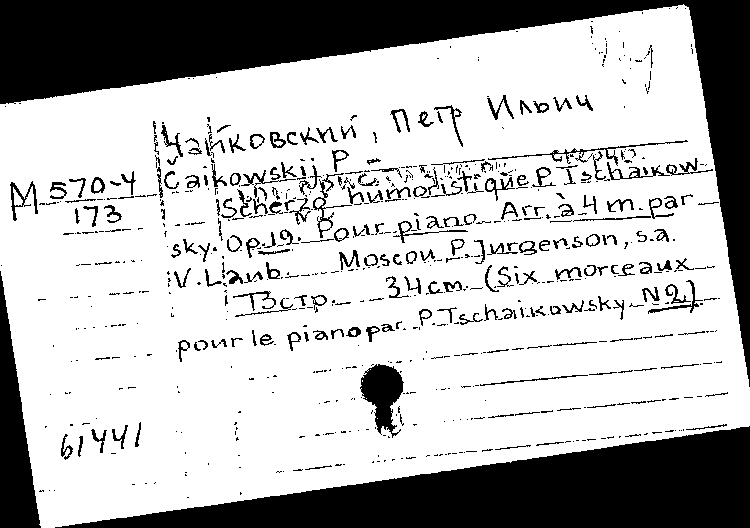 Чайковский, Петр Ильич
М 570-4
173
Čaikowskij P -
скерцо.
Scherzo humoristique P. Tschaikow-
sky. Op. 19. N2 Pour piano Arr. à 4 m. par
V. Laub. Moscou P. Jurgenson, s.a.
13стр. 34см. (Six morceaux
pour le piano par P. Tschaikowsky. N2)
61441